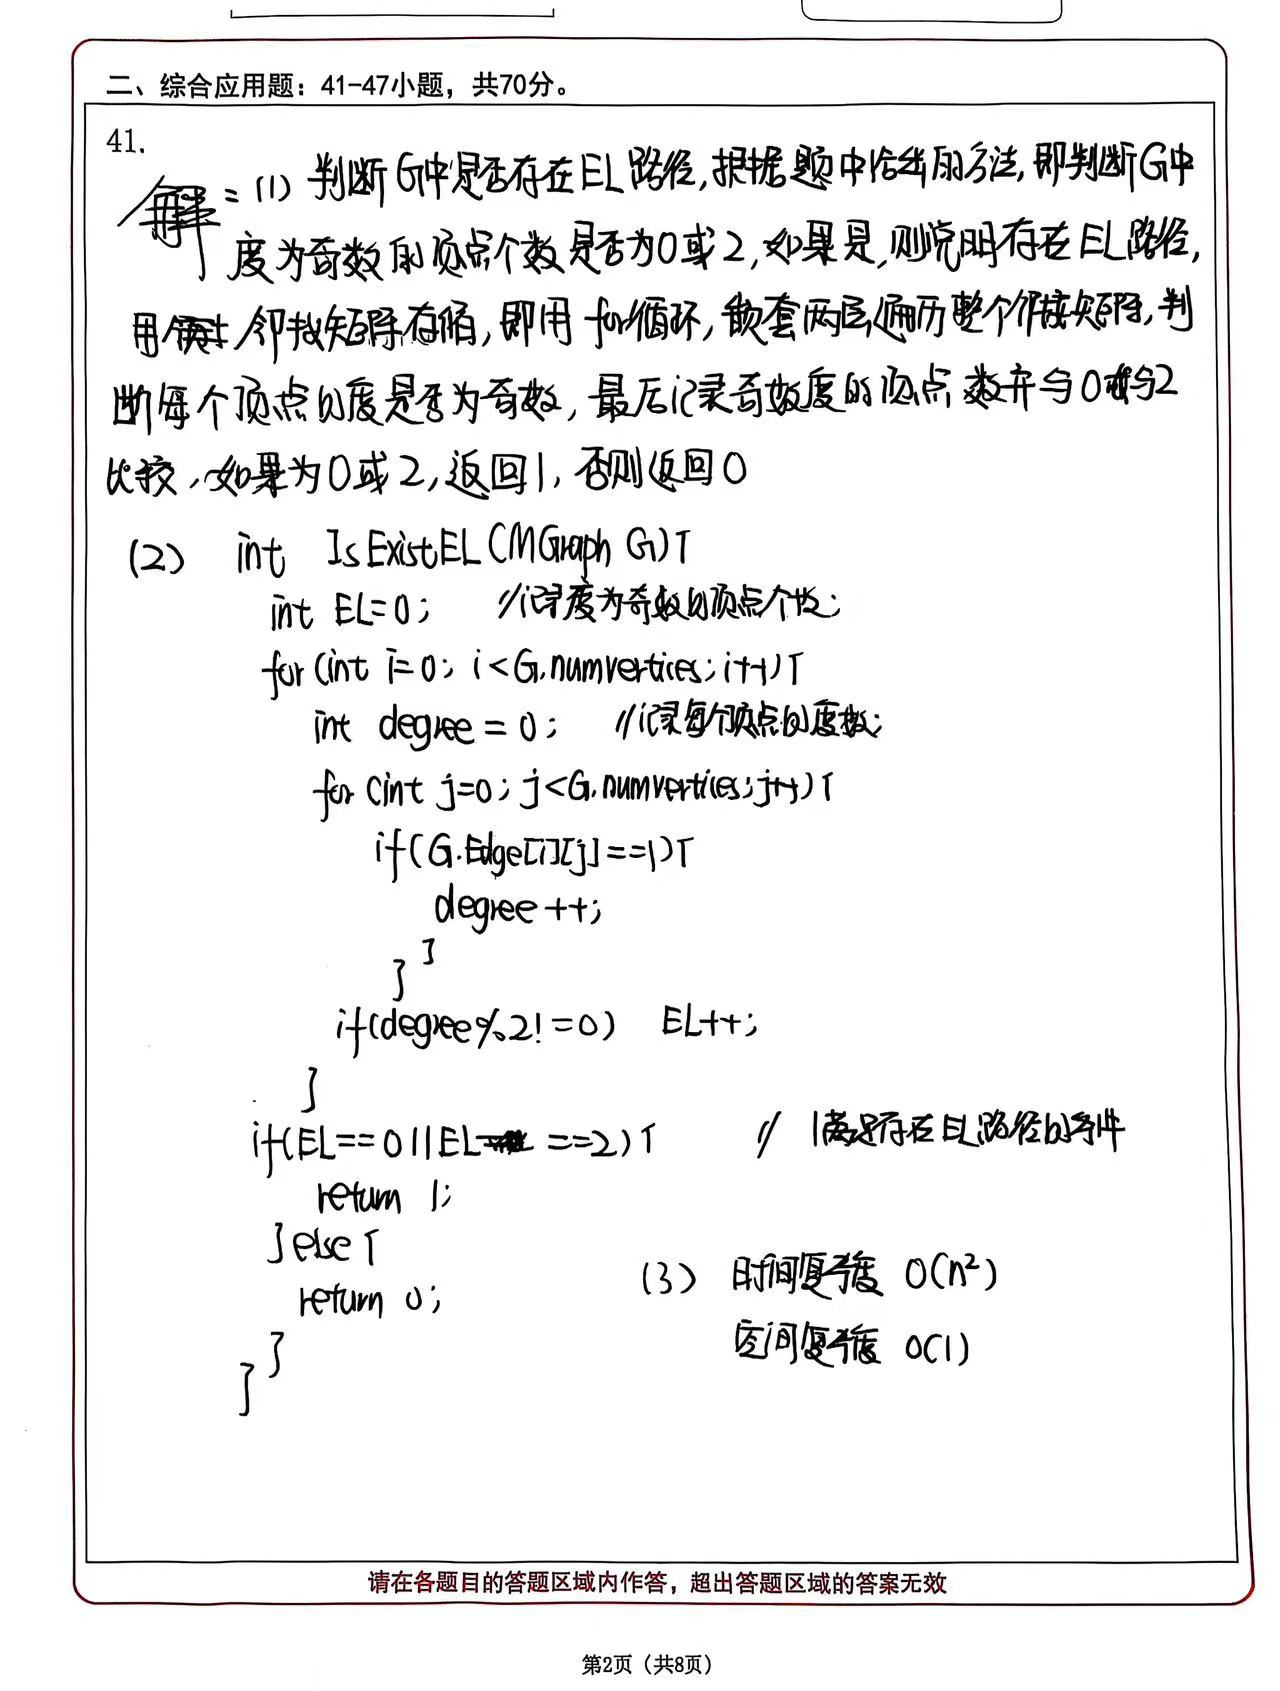 二、综合应用题：41-47小题，共70分。
41.
解：(1) 判断G中是否存在EL路径，根据题中给出的方法，即判断G中
度为奇数的顶点个数是否为0或2，如果是，则说明存在EL路径，
用邻接矩阵存储，即用for循环，嵌套两层遍历整个邻接矩阵，判
断每个顶点的度是否为奇数，最后记录奇数度的顶点数并与0或与2
比较，如果为0或2，返回1，否则返回0
(2) int IsExistEL(MGraph G){
int EL=0; //记录度为奇数的顶点个数;
for(int i=0; i<G.numvertices; i++){
int degree = 0; //记录每个顶点的度数;
for(int j=0; j<G.numvertices; j++){
if(G.Edge[i][j]==1){
degree++;
}
}
if(degree%2!=0) EL++;
}
if(EL==0||EL==2){ // 满足存在EL路径的条件
return 1;
}else{
return 0;
}
}
(3) 时间复杂度 O(n²)
空间复杂度 O(1)
请在各题目的答题区域内作答，超出答题区域的答案无效
第2页（共8页）